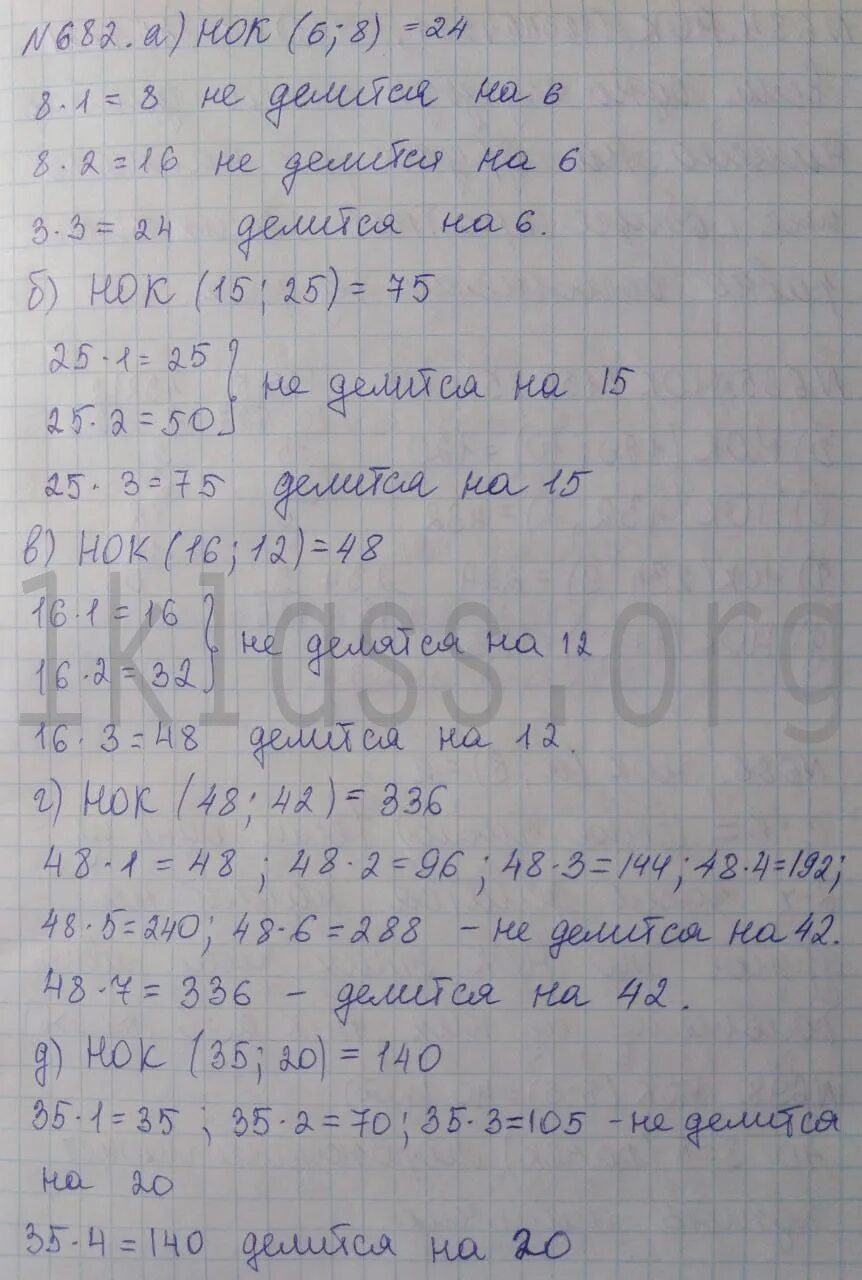 №682. а) НОК (6; 8) = 24
8·1 = 8 не делится на 6
8·2 = 16 не делится на 6
3·3 = 24 делится на 6.
б) НОК (15; 25) = 75
25·1 = 25
25·2 = 50 } не делится на 15
25·3 = 75 делится на 15
в) НОК (16; 12) = 48
1klass.org
16·1 = 16
16·2 = 32 } не делятся на 12
16·3 = 48 делится на 12.
г) НОК (48; 42) = 336
48·1 = 48; 48·2 = 96; 48·3 = 144; 48·4 = 192;
48·5 = 240; 48·6 = 288 – не делится на 42.
48·7 = 336 – делится на 42.
д) НОК (35; 20) = 140
35·1 = 35; 35·2 = 70; 35·3 = 105 – не делится
на 20
35·4 = 140 делится на 20